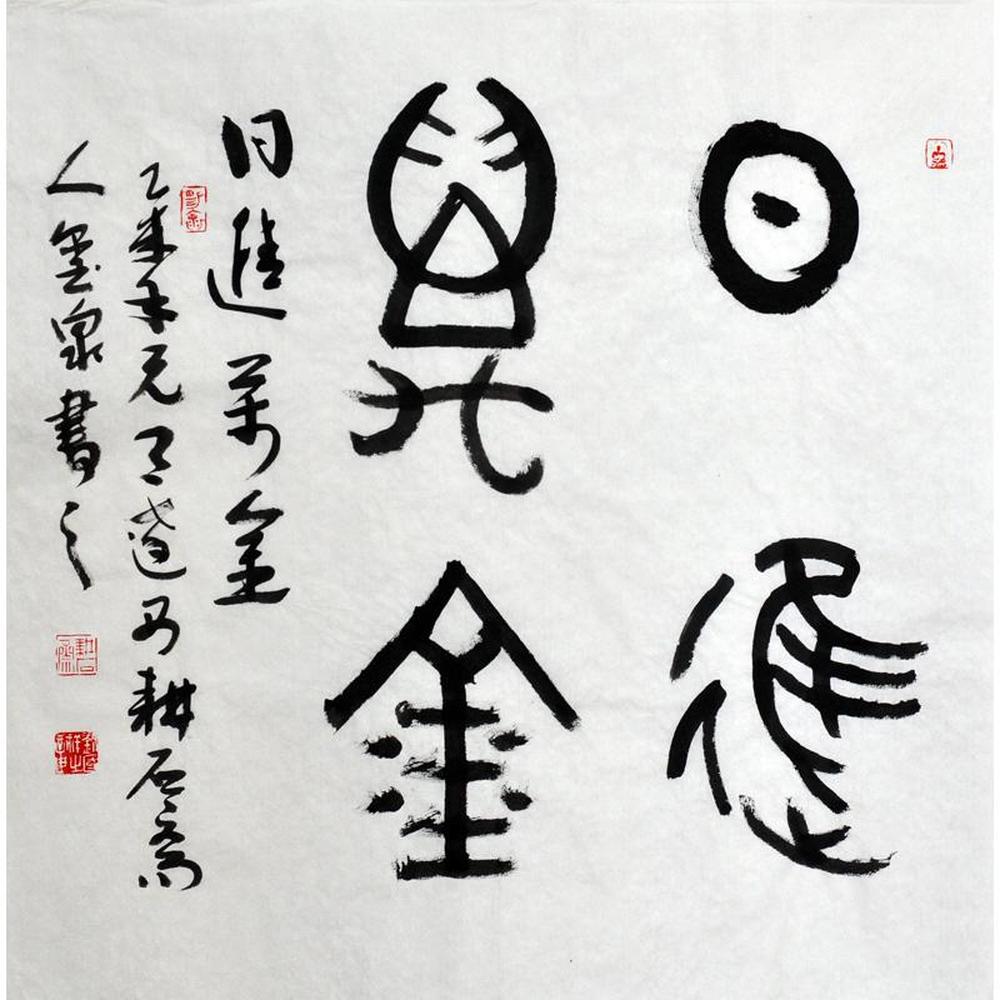 日進
萬金
日進萬金
乙未年元月道耕石齋
人墨泉書之